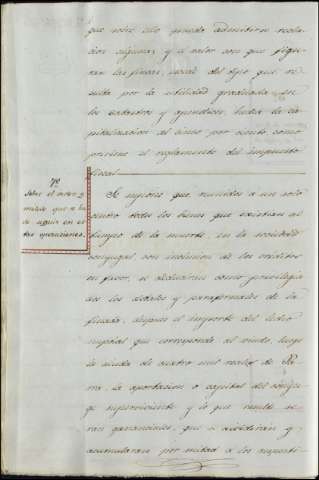 que sobre ello pueda admitirse recla-
cion alguna, y el valor con que figu-
ran las fincas, será del tipo que re-
sulta por la utilidad graduada en
los catastros y apendices, hecha la ca-
pitalizacion al cinco por ciento como
previene el reglamento del impuesto
fiscal.
7º
Sobre el orden y
metodo que se ha
de seguir en es-
tas operaciones.
Se supone que reunidos a un solo
centro todos los bienes que existian al
tiempo de la muerte, en la sociedad
conyugal, con inclusion de los creditos
en favor, se deduciran como privilegia-
dos los dotales y parafernales de la
finada, despues el importe del lecho
nupcial que corresponde al viudo, luego
la deuda de cuatro mil reales de
la aportacion o capital del cónyu-
ge superviviente y lo que reste se-
ran gananciales, que se dividiran y
acumularan por mitad a los respecti-